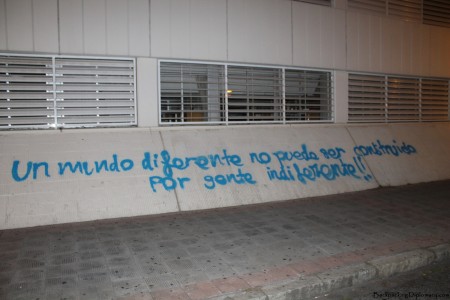 un mundo diferente no puede ser construido
por gente indiferente!!